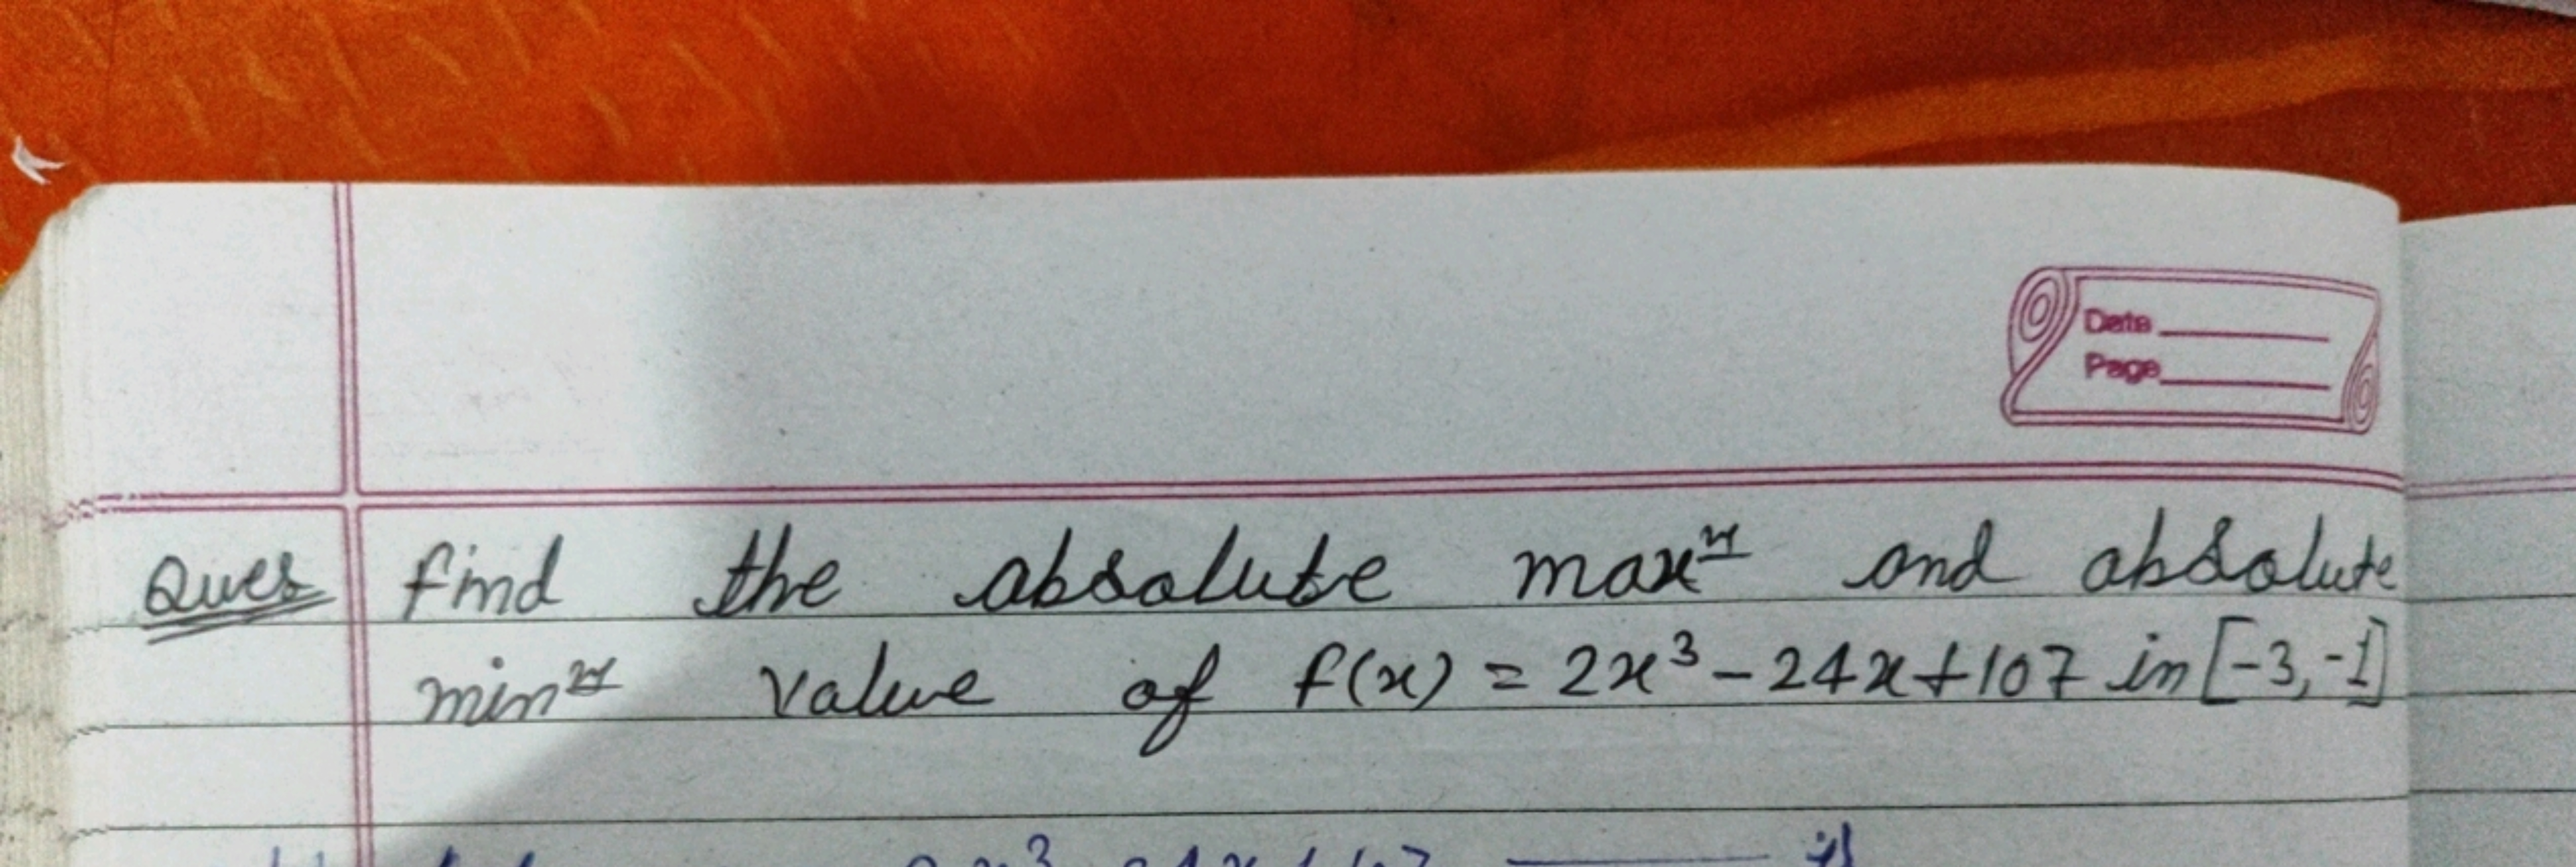 Date
Page
Ques find the absolute maxm and absolute
minm value of f(x) = 2x³ - 24x + 107 in [-3, -1]